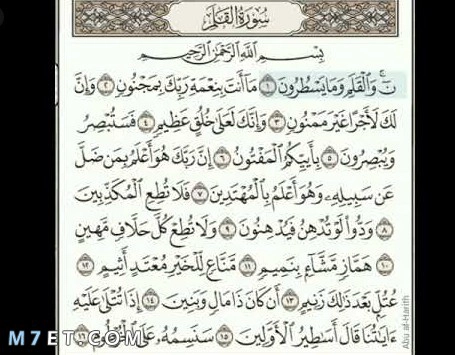 سُورَةُ القَلَمِ
بِسْمِ اللَّهِ الرَّحْمَٰنِ الرَّحِيمِ
نٓ ۚ وَالْقَلَمِ وَمَا يَسْطُرُونَ ١ مَا أَنتَ بِنِعْمَةِ رَبِّكَ بِمَجْنُونٍ ٢ وَإِنَّ
لَكَ لَأَجْرًا غَيْرَ مَمْنُونٍ ٣ وَإِنَّكَ لَعَلَىٰ خُلُقٍ عَظِيمٍ ٤ فَسَتُبْصِرُ
وَيُبْصِرُونَ ٥ بِأَييِّكُمُ الْمَفْتُونُ ٦ إِنَّ رَبَّكَ هُوَ أَعْلَمُ بِمَن ضَلَّ
عَن سَبِيلِهِ وَهُوَ أَعْلَمُ بِالْمُهْتَدِينَ ٧ فَلَا تُطِعِ الْمُكَذِّبِينَ
٨ وَدُّوا لَوْ تُدْهِنُ فَيُدْهِنُونَ ٩ وَلَا تُطِعْ كُلَّ حَلَّافٍ مَّهِينٍ
١٠ هَمَّازٍ مَّشَّاءٍ بِنَمِيمٍ ١١ مَّنَّاعٍ لِّلْخَيْرِ مُعْتَدٍ أَثِيمٍ ١٢
عُتُلٍّ بَعْدَ ذَٰلِكَ زَنِيمٍ ١٣ أَن كَانَ ذَا مَالٍ وَبَنِينَ ١٤ إِذَا تُتْلَىٰ عَلَيْهِ
ءَايَٰتُنَا قَالَ أَسَٰطِيرُ الْأَوَّلِينَ ١٥ سَنَسِمُهُ عَلَى الْخُرْطُومِ ١٦
Abu al-Harith
M7ET.COM